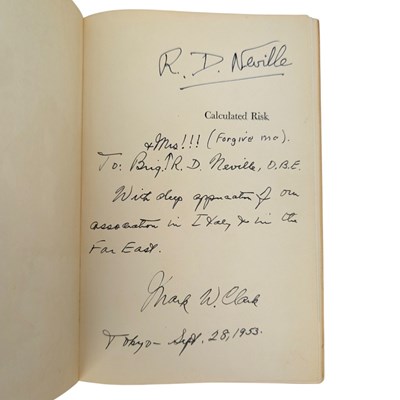 R. D. Neville
Calculated Risk
& Mrs!!! (Forgive me).
To: Brig. R. D. Neville, O.B.E.
With deep appreciation of our
association in Italy & in the
Far East.
Mark W. Clark
Tokyo - Sept. 28, 1953.